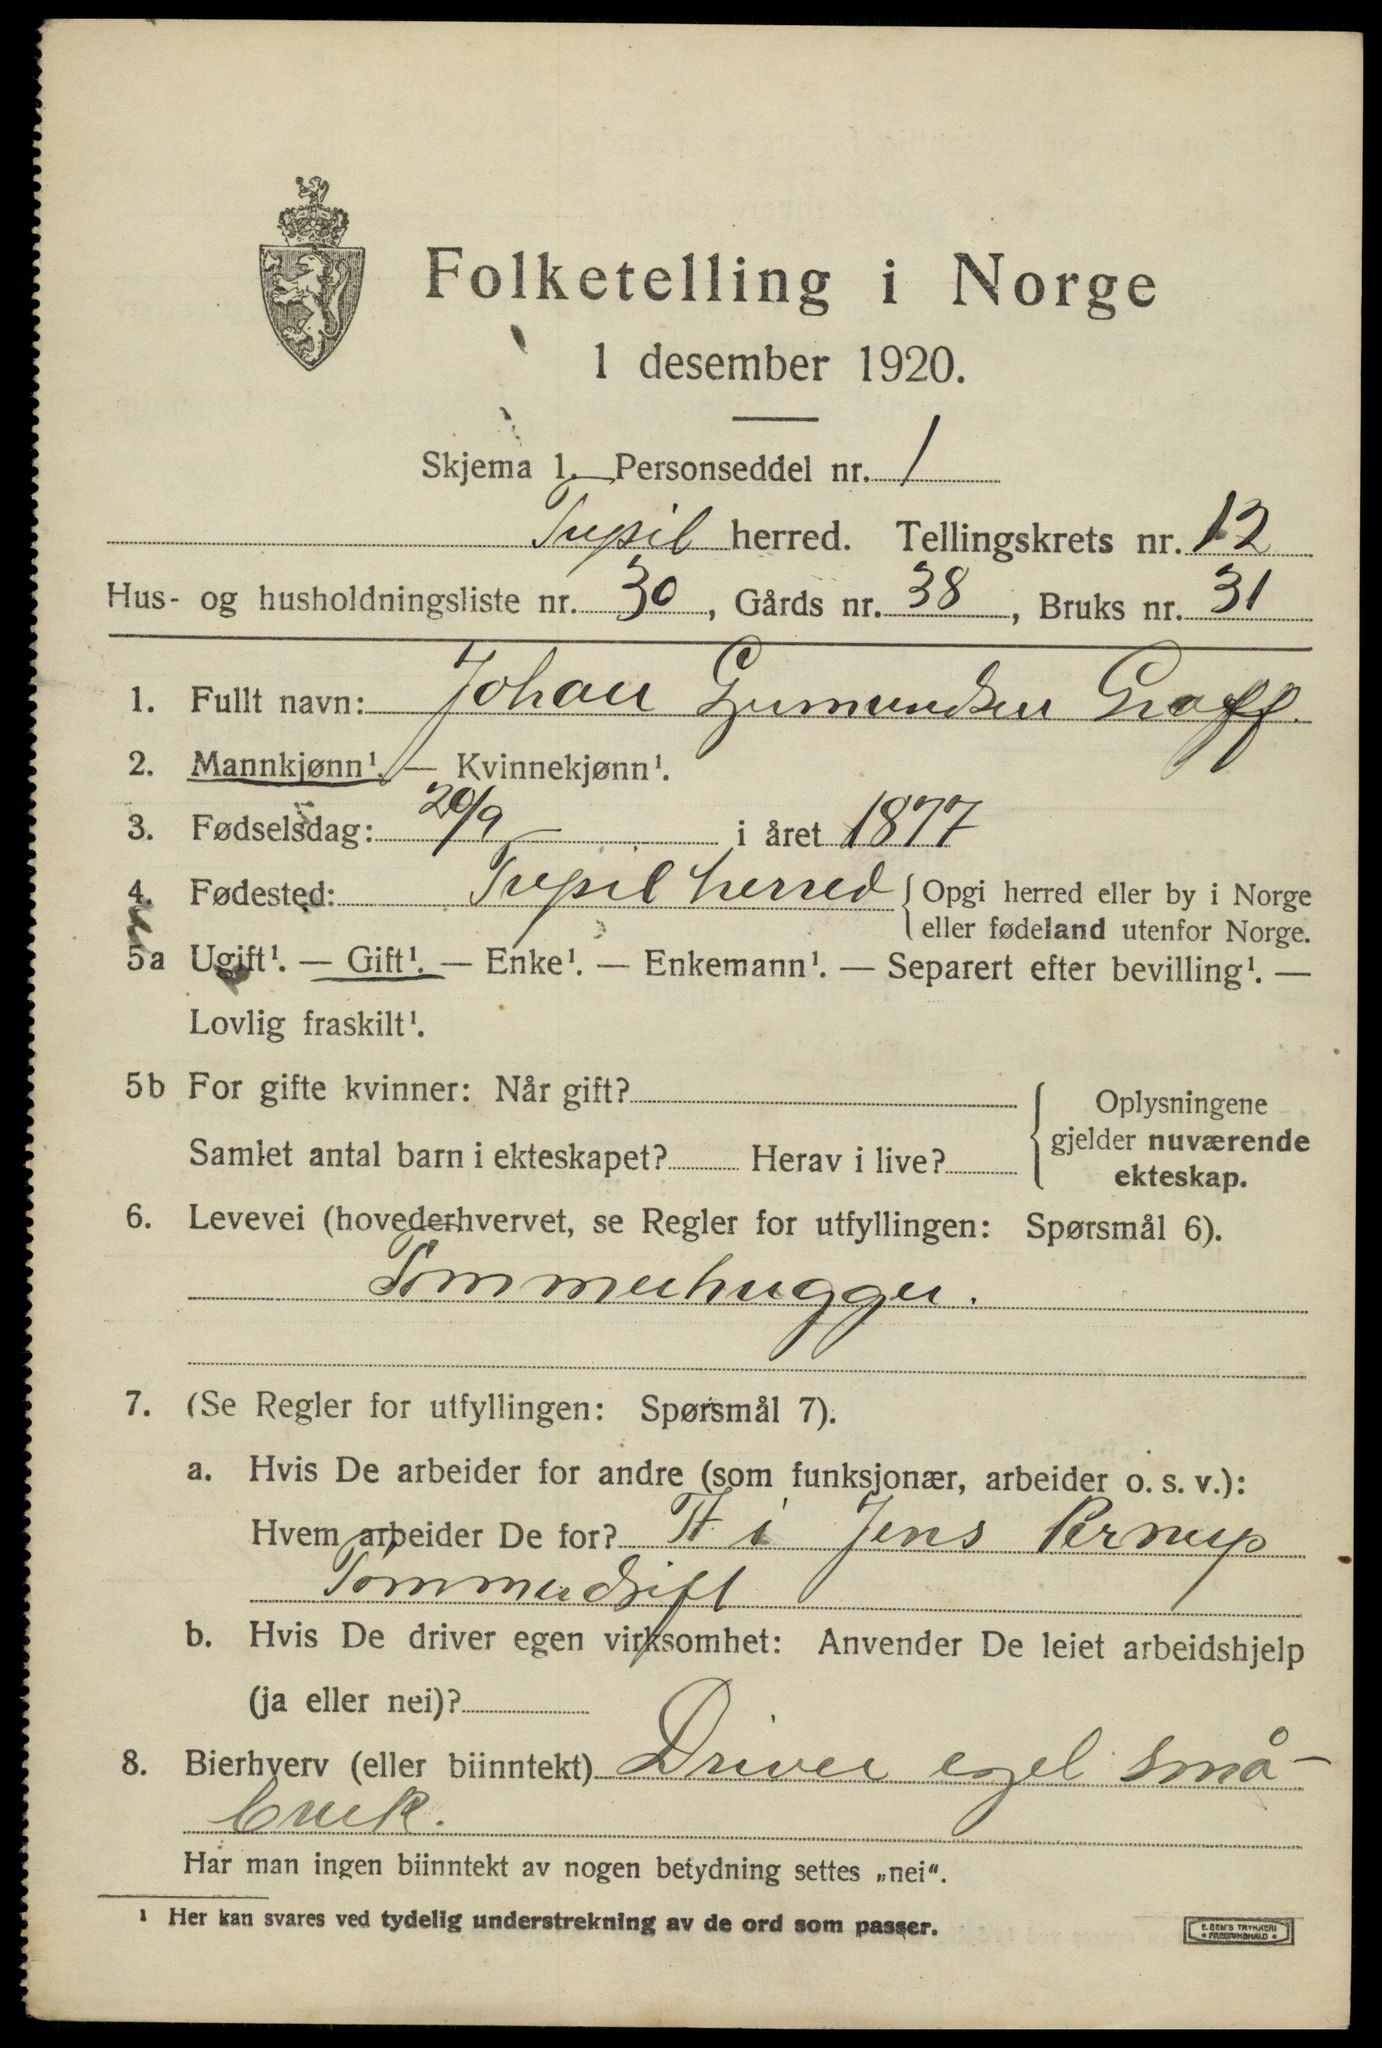 Folketelling i Norge
1 desember 1920.
Skjema 1. Personseddel nr. 1
Trysil herred. Tellingskrets nr. 12
Hus- og husholdningsliste nr. 30, Gårds nr. 38, Bruks nr. 31
1. Fullt navn: Johan Gumundsen Graff.
2. Mannkjønn¹. — Kvinnekjønn¹.
3. Fødselsdag: 20/9 i året 1877
4. Fødested: Trysil herred { Opgi herred eller by i Norge
eller fødeland utenfor Norge.
5a Ugift¹. — Gift¹. — Enke¹. — Enkemann¹. — Separert efter bevilling¹. —
Lovlig fraskilt¹.
5b For gifte kvinner: Når gift? { Oplysningene
gjelder nuværende
Samlet antal barn i ekteskapet? Herav i live?
ekteskap.
6. Levevei (hovederhvervet, se Regler for utfyllingen: Spørsmål 6).
Tømmerhugger.
7. (Se Regler for utfyllingen: Spørsmål 7).
a. Hvis De arbeider for andre (som funksjonær, arbeider o. s. v.):
Hvem arbeider De for? H i Jens Pernup
Tømmerdrift
b. Hvis De driver egen virksomhet: Anvender De leiet arbeidshjelp
(ja eller nei)?
8. Bierhverv (eller biinntekt) Driver eget små-
bruk.
Har man ingen biinntekt av nogen betydning settes „nei“.
¹ Her kan svares ved tydelig understrekning av de ord som passer.
E. SEM'S TRYKKERI
• FREDRIKSHALD •